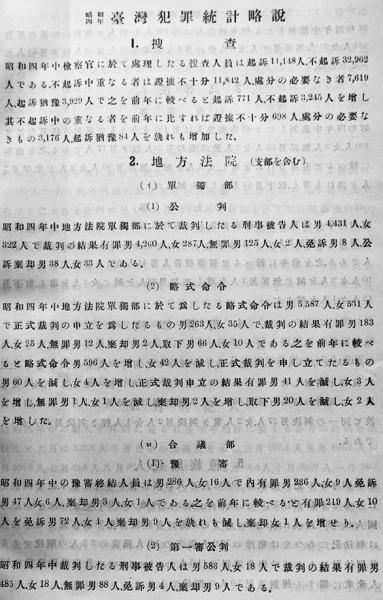 昭和四年 臺灣犯罪統計略說
1. 搜查
昭和四年中檢察官に於て處理したる搜查人員は起訴11,148人,不起訴32,962
人である。不起訴中重なる者は證據不十分11,842人,處分の必要なき者7,619
人,起訴猶豫3,929人で之を前年に較べると起訴771人,不起訴3,245人を增し
其不起訴中の重なる者を前年に比すれば證據不十分698人,處分の必要な
きもの3,176人,起訴猶豫84人を孰れも增加した。
2. 地方法院 (支部を含む)
(イ) 單獨部
(1) 公判
昭和四年中地方法院單獨部に於て裁判したる刑事被告人は男4,431人,女
322人で裁判の結果有罪男4,260人,女287人,無罪男125人,女2人,免訴男8人,公
訴棄却男38人,女33人である。
(2) 略式命令
昭和四年中地方法院單獨部に於て爲したる略式命令は男5,587人,女531人
で正式裁判の申立を爲したるもの男263人,女35人で,裁判の結果有罪男183
人,女25人,無罪男12人,棄却男2人,取下男66人,女10人である之を前年に較べ
ると略式命令男596人を增し,女42人を減し,正式裁判を申し立てたるもの
男60人を減し,女4人を增し,正式裁判申立の結果有罪男41人を減し,女3人
を增し,無罪男1人,女1人を減し棄却男2人を增し,取下男20人を減し,女2人
を增した。
(ロ) 合議部
(1) 豫審
昭和四年中の豫審終結人員は男286人,女16人で內有罪男236人,女9人,免訴
男47人,女6人,棄却男3人,女1人である之を前年に較べると有罪219人,女10
人を免訴男72人,女1人,棄却男9人を孰れも減し,棄却女1人を增せり。
(2) 第一審公判
昭和四年中裁判したる刑事被告人は男586人,女18人で裁判の結果有罪男
485人,女18人,無罪男88人,免訴男4人,棄却男9人である。